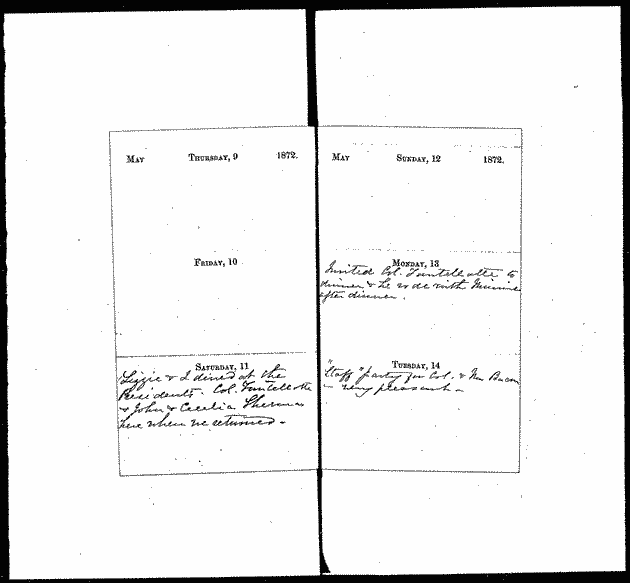 May Thursday, 9 1872.
Friday, 10
Saturday, 11
Lizzie & I dined at the
Presidents. Col.
& John & Cecelia Sherman
here when we returned -
May Sunday, 12 1872.
Monday, 13
Invited Col. to
dinner & he rode with Minnie
after dinner.
Tuesday, 14
"Staff" party for Col. & Mrs Bacon
- very pleasant -